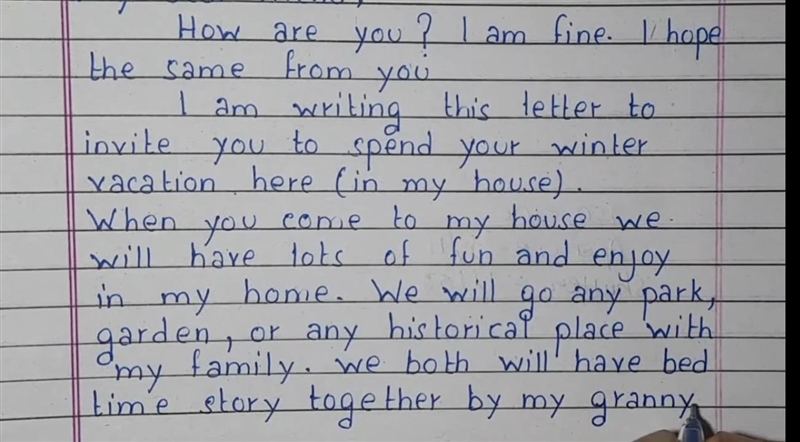 How are you? I am fine. I hope
the same from you
I am writing this letter to
invite you to spend your winter
vacation here (in my house).
When you come to my house we
will have lots of fun and enjoy
in my home. We will go any park,
garden, or any historical place with
my family. We both will have bed
time story together by my granny